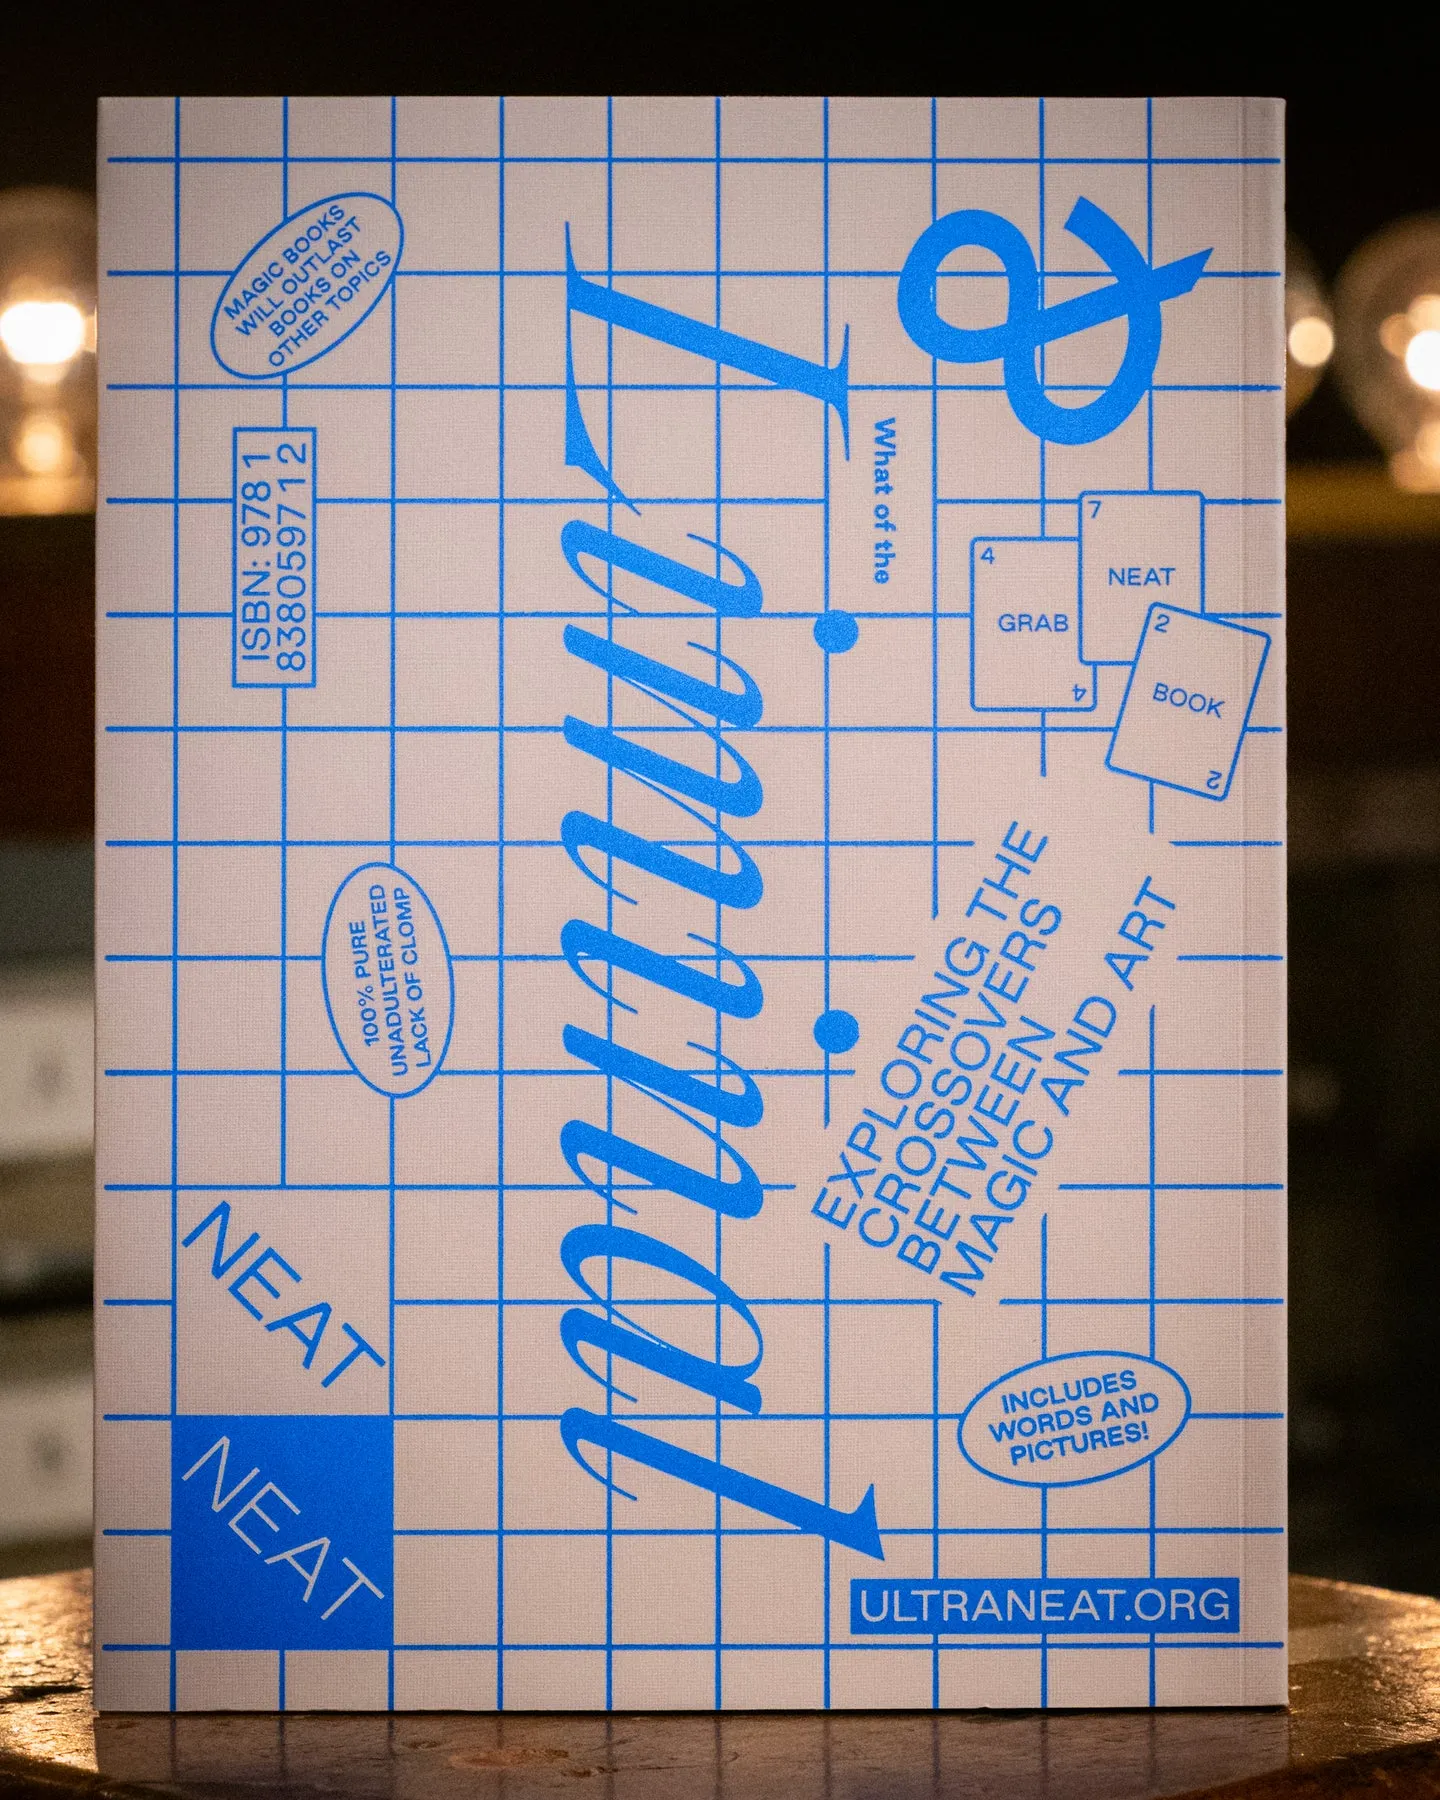 &
What of the
Liminal
MAGIC BOOKS
WILL OUTLAST
BOOKS ON
OTHER TOPICS
ISBN: 978 1
838059712
4
GRAB
4
7
NEAT
2
BOOK
2
EXPLORING THE
CROSSOVERS
BETWEEN
MAGIC AND ART
100% PURE
UNADULTERATED
LACK OF CLOMP
NEAT
NEAT
INCLUDES
WORDS AND
PICTURES!
ULTRANEAT.ORG